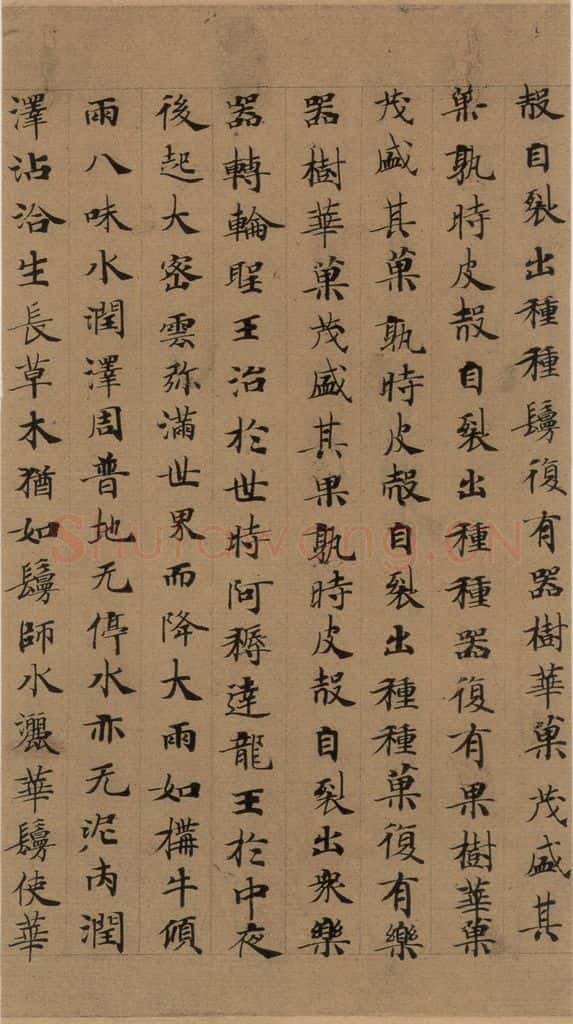 殼自裂出種種鬘復有器樹華菓茂盛其
菓孰時皮殼自裂出種種器復有果樹華菓
茂盛其菓孰時皮殼自裂出種種菓復有樂
器樹華菓茂盛其果孰時皮殼自裂出衆樂
器轉輪聖王治於世時阿耨達龍王於中夜
後起大密雲弥滿世界而降大雨如構牛傾
雨八味水潤澤周普地无停水亦无泥洿潤
澤沾洽生長草木猶如鬘師水灑華鬘使華
Shufawang.CN